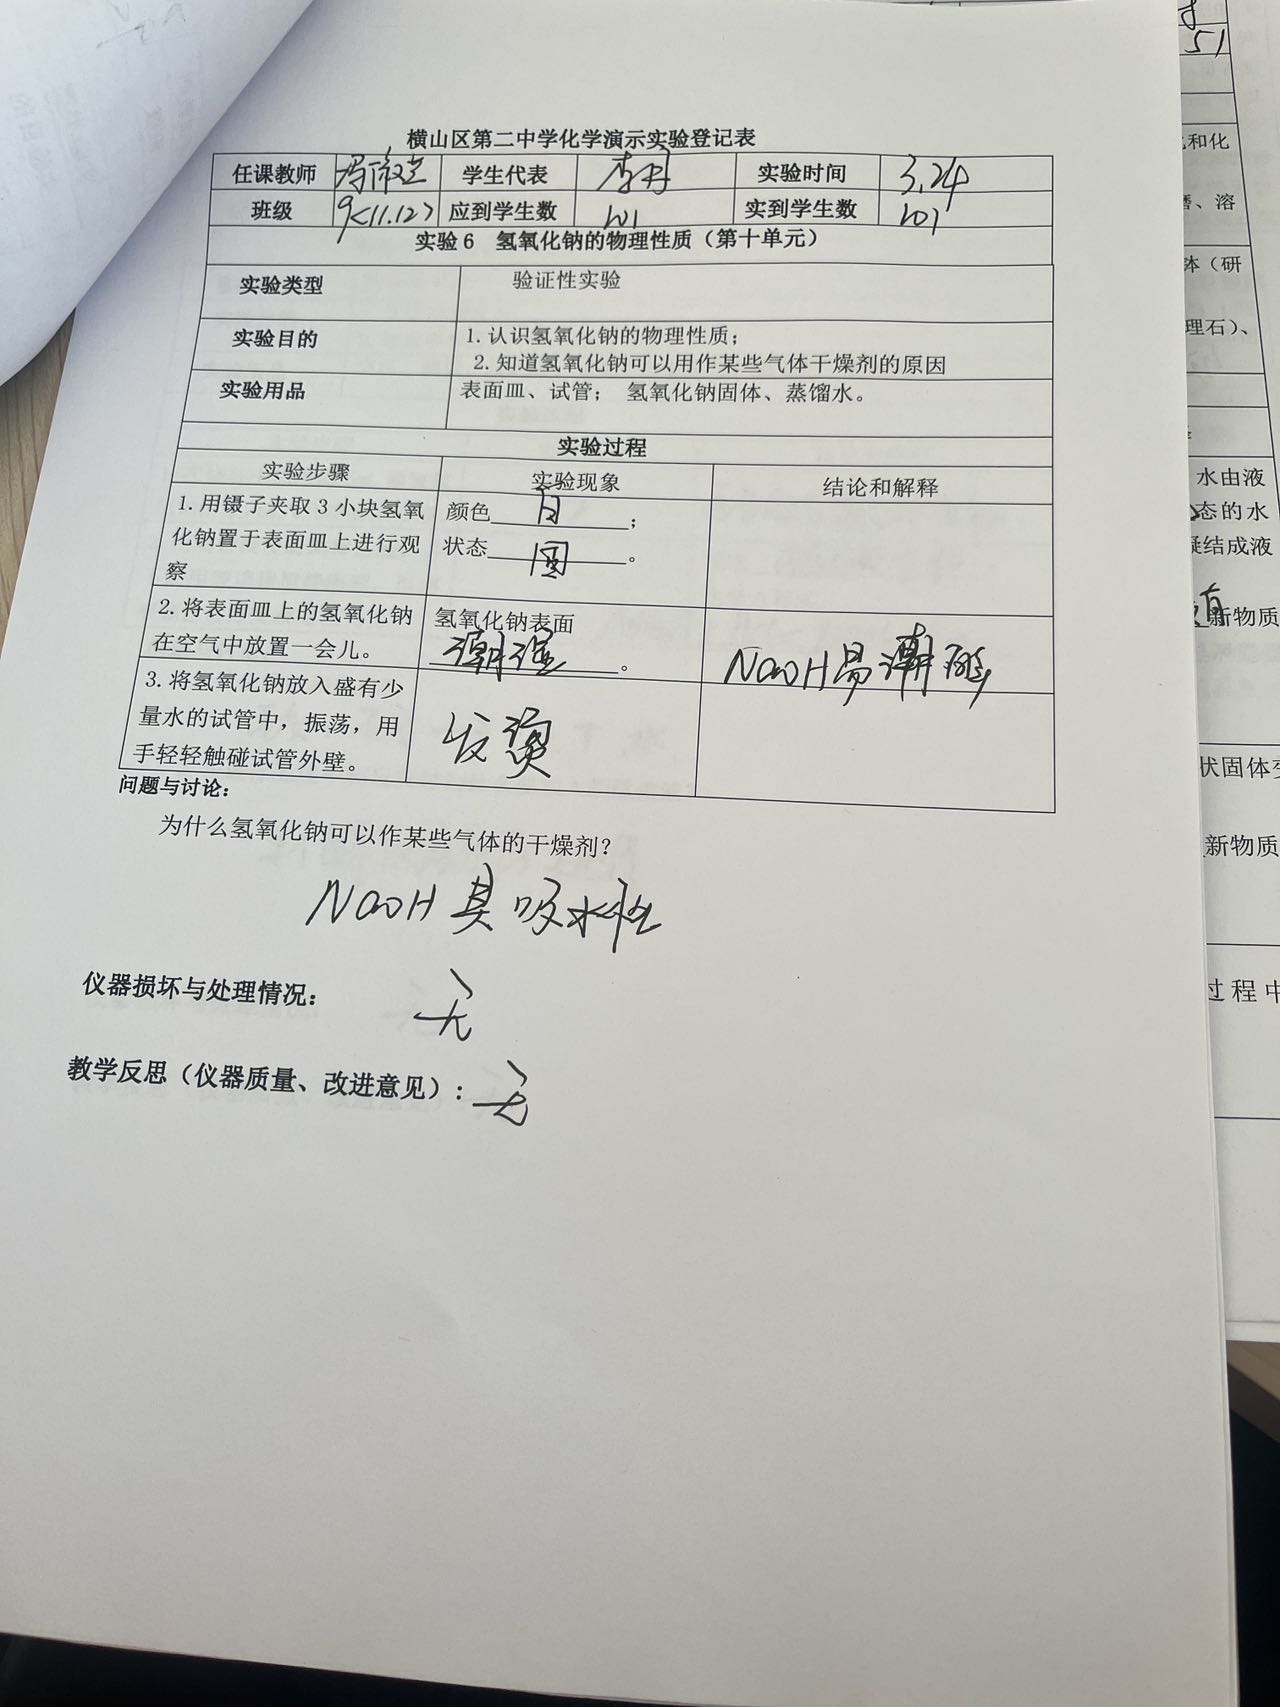 横山区第二中学化学演示实验登记表
任课教师 冯 学生代表 李丹 实验时间 3.24
班级 9<11.12> 应到学生数 101 实到学生数 101
实验6 氢氧化钠的物理性质（第十单元）
实验类型 验证性实验
实验目的 1.认识氢氧化钠的物理性质；
2.知道氢氧化钠可以用作某些气体干燥剂的原因
实验用品 表面皿、试管； 氢氧化钠固体、蒸馏水。
实验过程
实验步骤 实验现象 结论和解释
1.用镊子夹取3小块氢氧
化钠置于表面皿上进行观
察
颜色 白 ；
状态 固 。
2.将表面皿上的氢氧化钠
在空气中放置一会儿。
氢氧化钠表面
潮湿 。
NaOH易潮解
3.将氢氧化钠放入盛有少
量水的试管中，振荡，用
手轻轻触碰试管外壁。
发烫
问题与讨论：
为什么氢氧化钠可以作某些气体的干燥剂？
NaOH具吸水性
仪器损坏与处理情况： 无
教学反思（仪器质量、改进意见）: 无
51
和化
、溶
钵（研
理石）、
水由液
态的水
凝结成液
新物质
状固体变
新物质
过程中